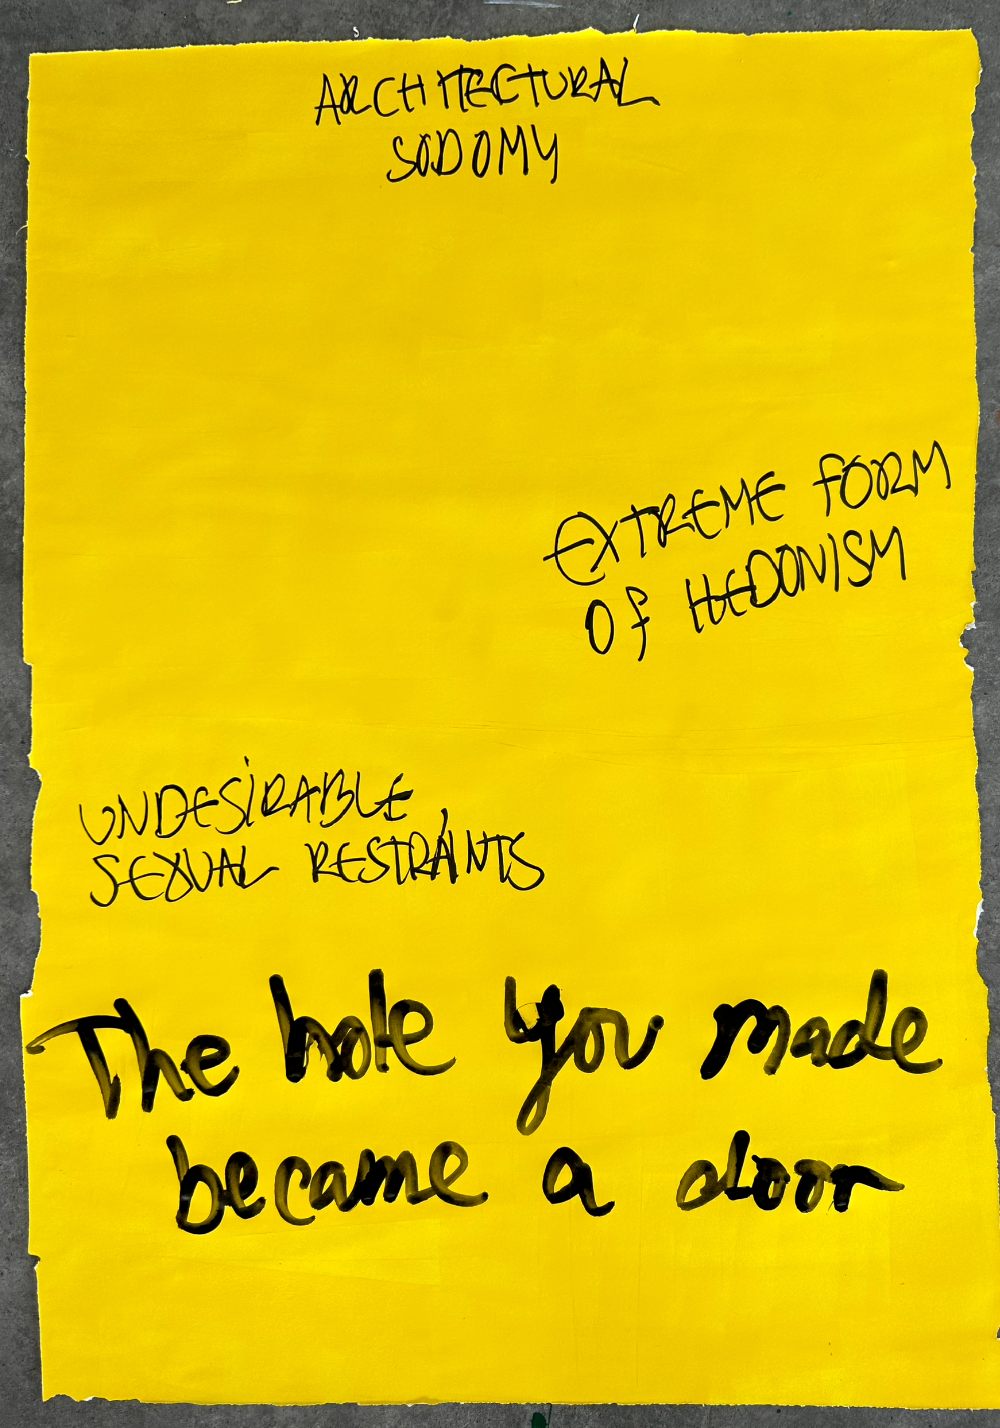 ARCHITECTURAL
SODOMY
EXTREME FORM
OF HEDONISM
UNDESIRABLE
SEXUAL RESTRAINTS
The hole you made
became a door